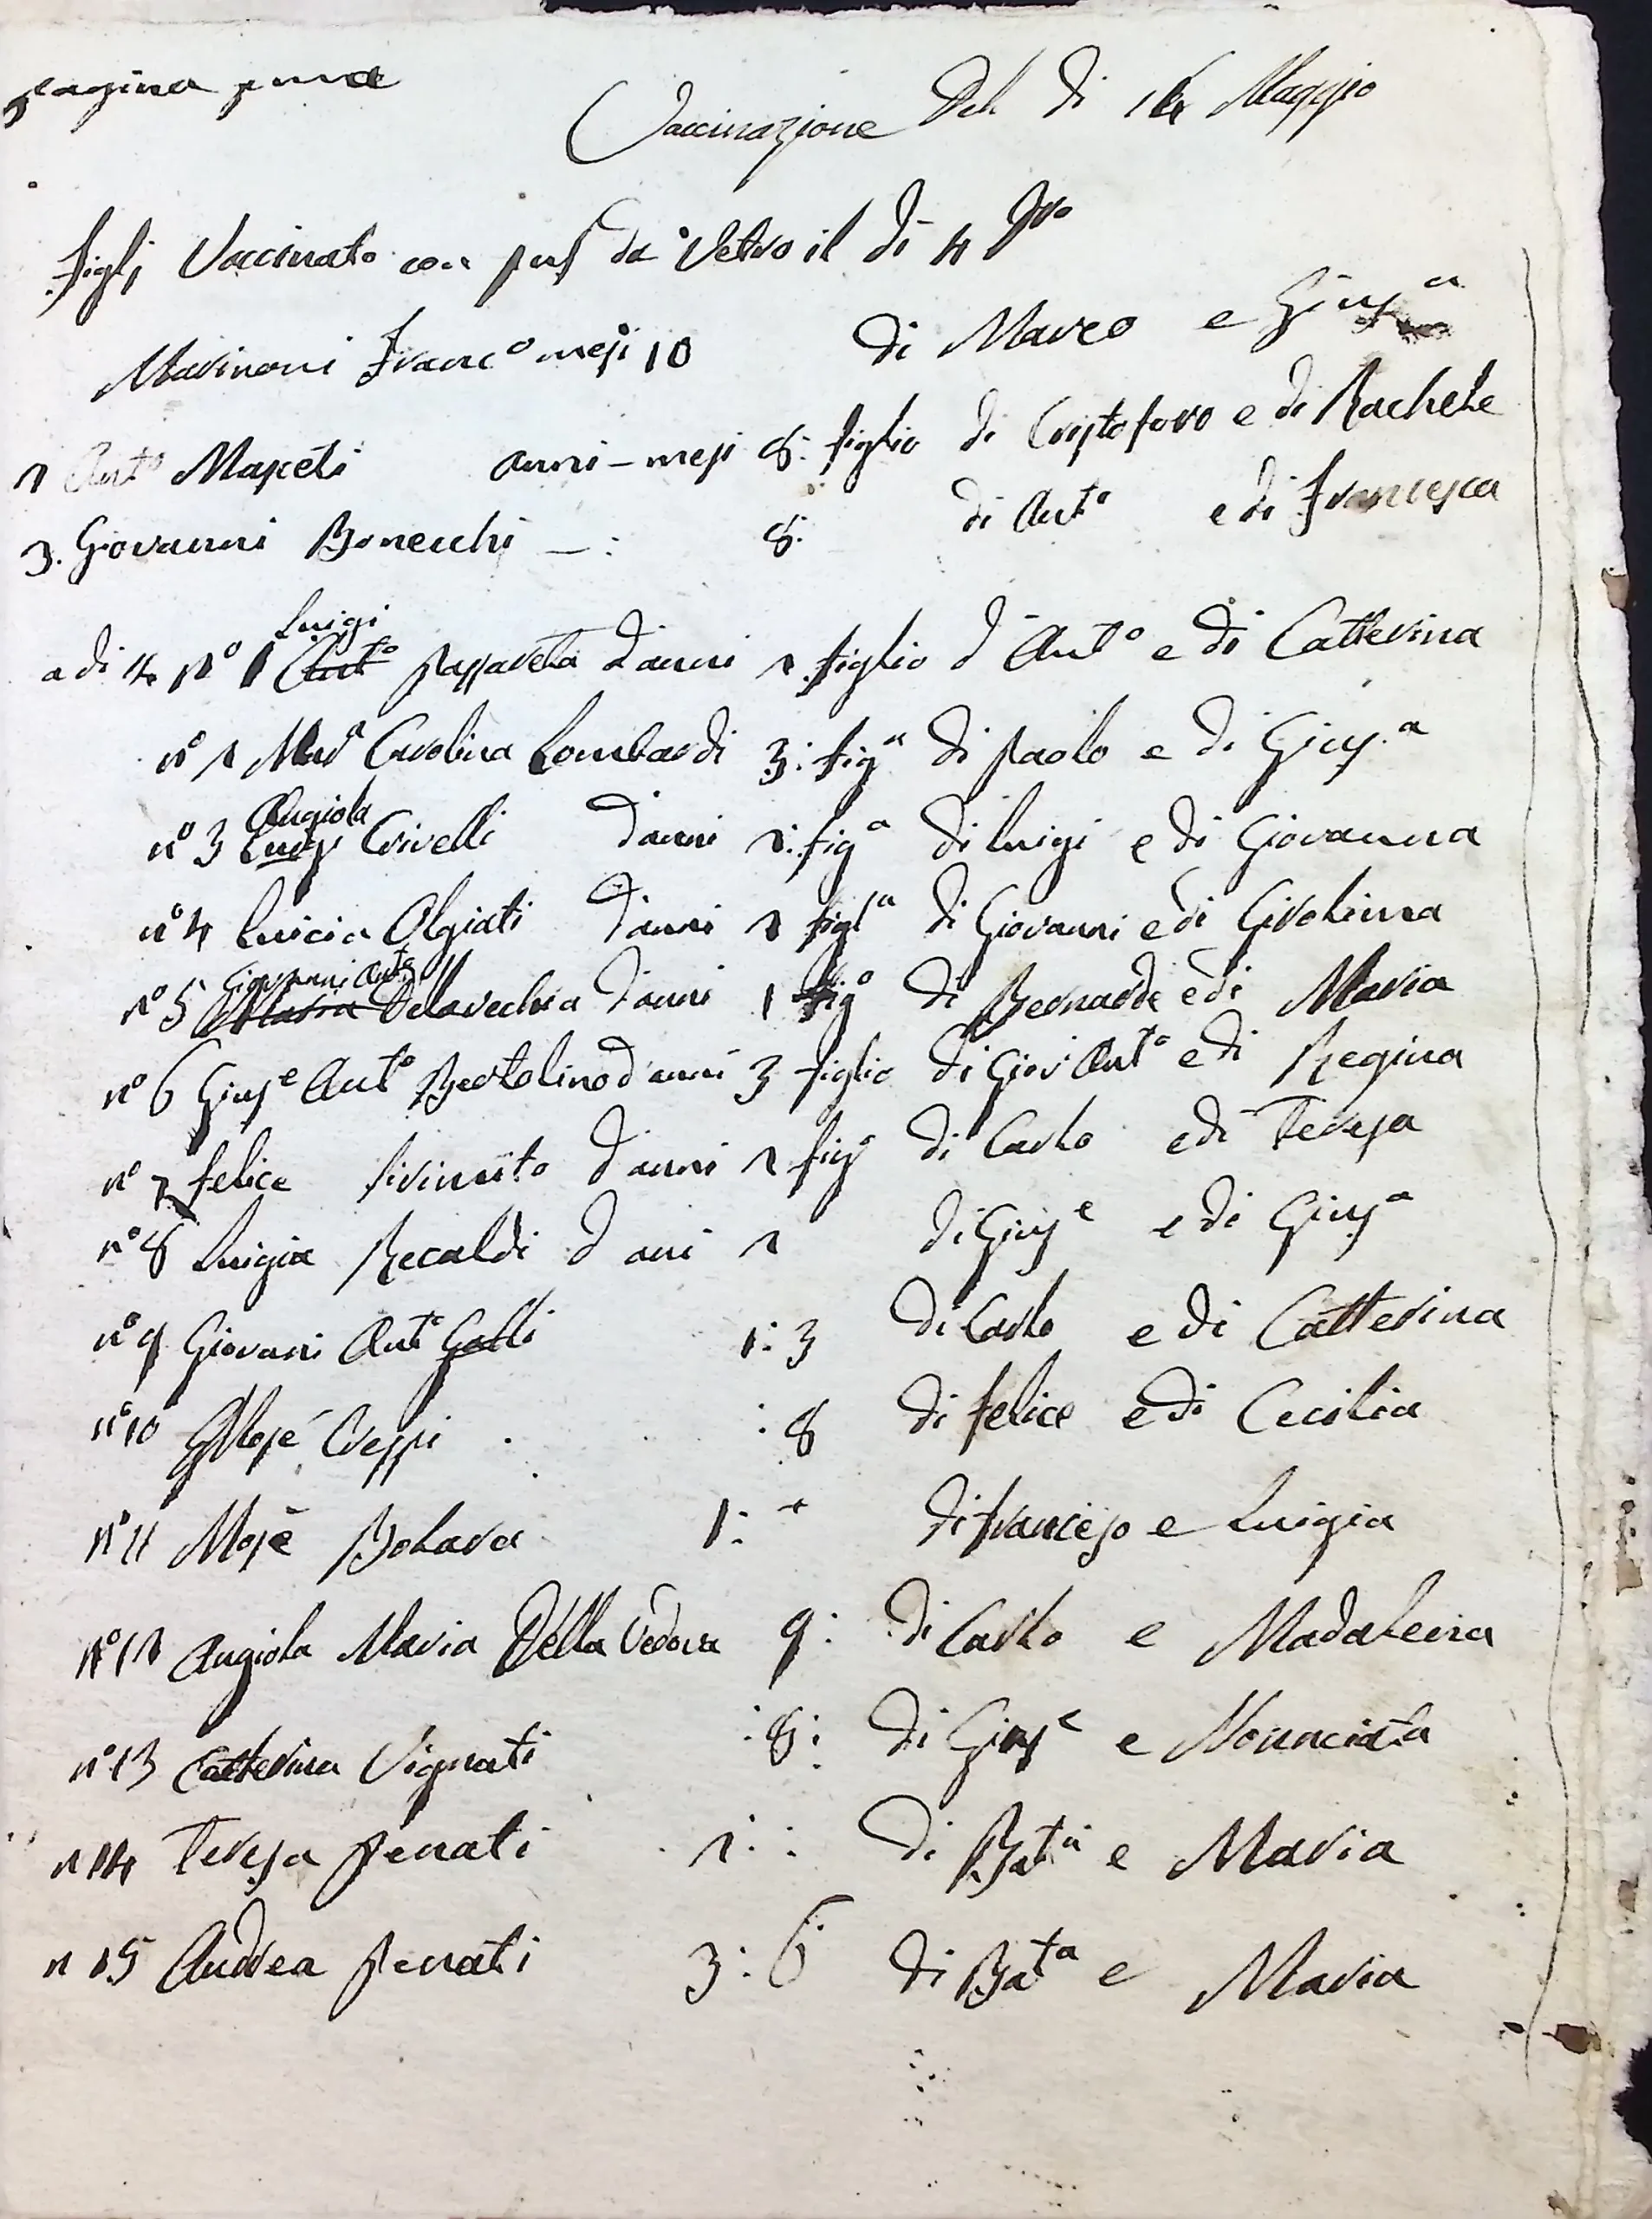 pagina pma
Vaccinazione Del Di 14 Maggio
figlj Vaccinato con pus da Vetro il di 4 do
Marinoni Franco mesi 10 di Marco e Giusa
2 Anto Maseti anni - mesi 8: figlio di Cristoforo e di Rachele
3. Giovanni Bonecchi - : 8: di Anto e di Francesca
Luigi
a di 4 No 1 Anto Passareta d'anni 2 figlio d'Anto e di Catterina
no 2 Mara Carolina Lombardi 3: figa di Paolo e di Giusa
Angiola
no 3 Luigi Crivelli d'anni 2: figa di Luigi e di Giovanna
no 4 Lucia Olgiati d'anni 2 figla di Giovanni e di Girolima
Giovanni Anto
no 5 Maria Delavechia d'anni 1 figo di Bernardo e di Maria
no 6 Giuse Anto Bertolino d'anni 3 figlio di Giov Anto e di Regina
no 7 felice d'anni 2 figo di Carlo e di Teresa
no 8 Luigia Recaldi d ani 2 di Giuse e di Giusa
no 9 Giovani Anto Galli 1: 3 di Carlo e di Catterina
no 10 Mosé Crespi : 8 di felice e di Cecilia
no 11 Mosè Bolara 1: di francesco e Luigia
no 12 Angiola Maria Della Vedova 9: di Carlo e Madalena
no 13 Catterina Vignati : 8: di Giuse e Nonnciata
n 14 Teresa Penati 2: : di Bata e Maria
n 15 Andrea Penati 3: 6 di Bata e Maria